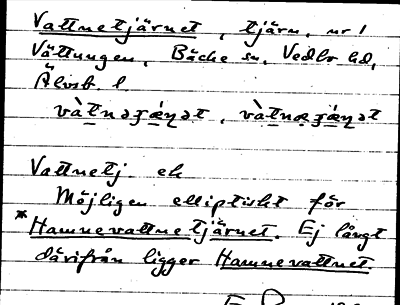 Vattnetjärnet, tjärn, nr 1
Vättungen, Bäcke sn, Vedbo hd,
Älvsb. l.
Vattnetj. ek
Möjligen elliptiskt för
*Hamnevattnetjärnet. Ej långt
därifrån ligger Hamnevattnet